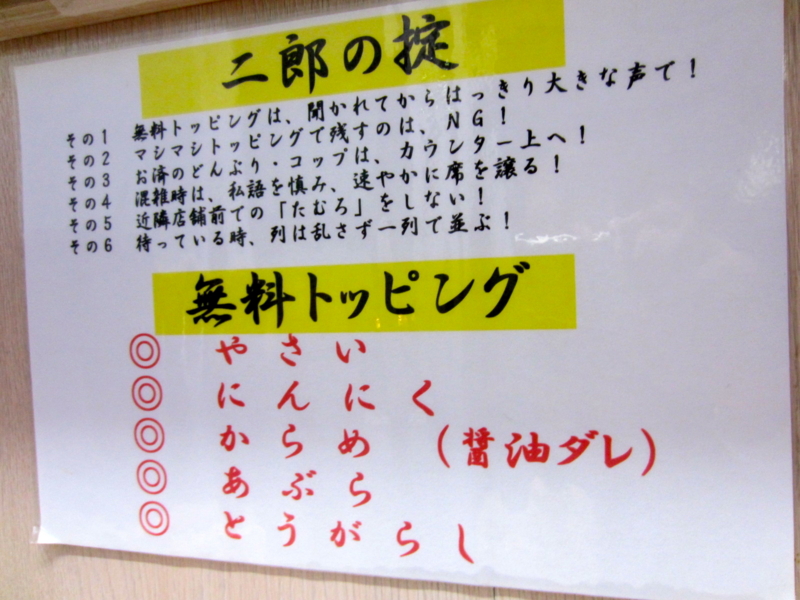 二郎の掟
その1 無料トッピングは、聞かれてからはっきり大きな声で!
その2 マシマシトッピングで残すのは、NG!
その3 お済のどんぶり・コップは、カウンター上へ!
その4 混雑時は、私語を慎み、速やかに席を譲る!
その5 近隣店舗前での「たむろ」をしない!
その6 待っている時、列は乱さず一列で並ぶ!
無料トッピング
◎ やさい
◎ にんにく
◎ からめ (醤油ダレ)
◎ あぶら
◎ とうがらし